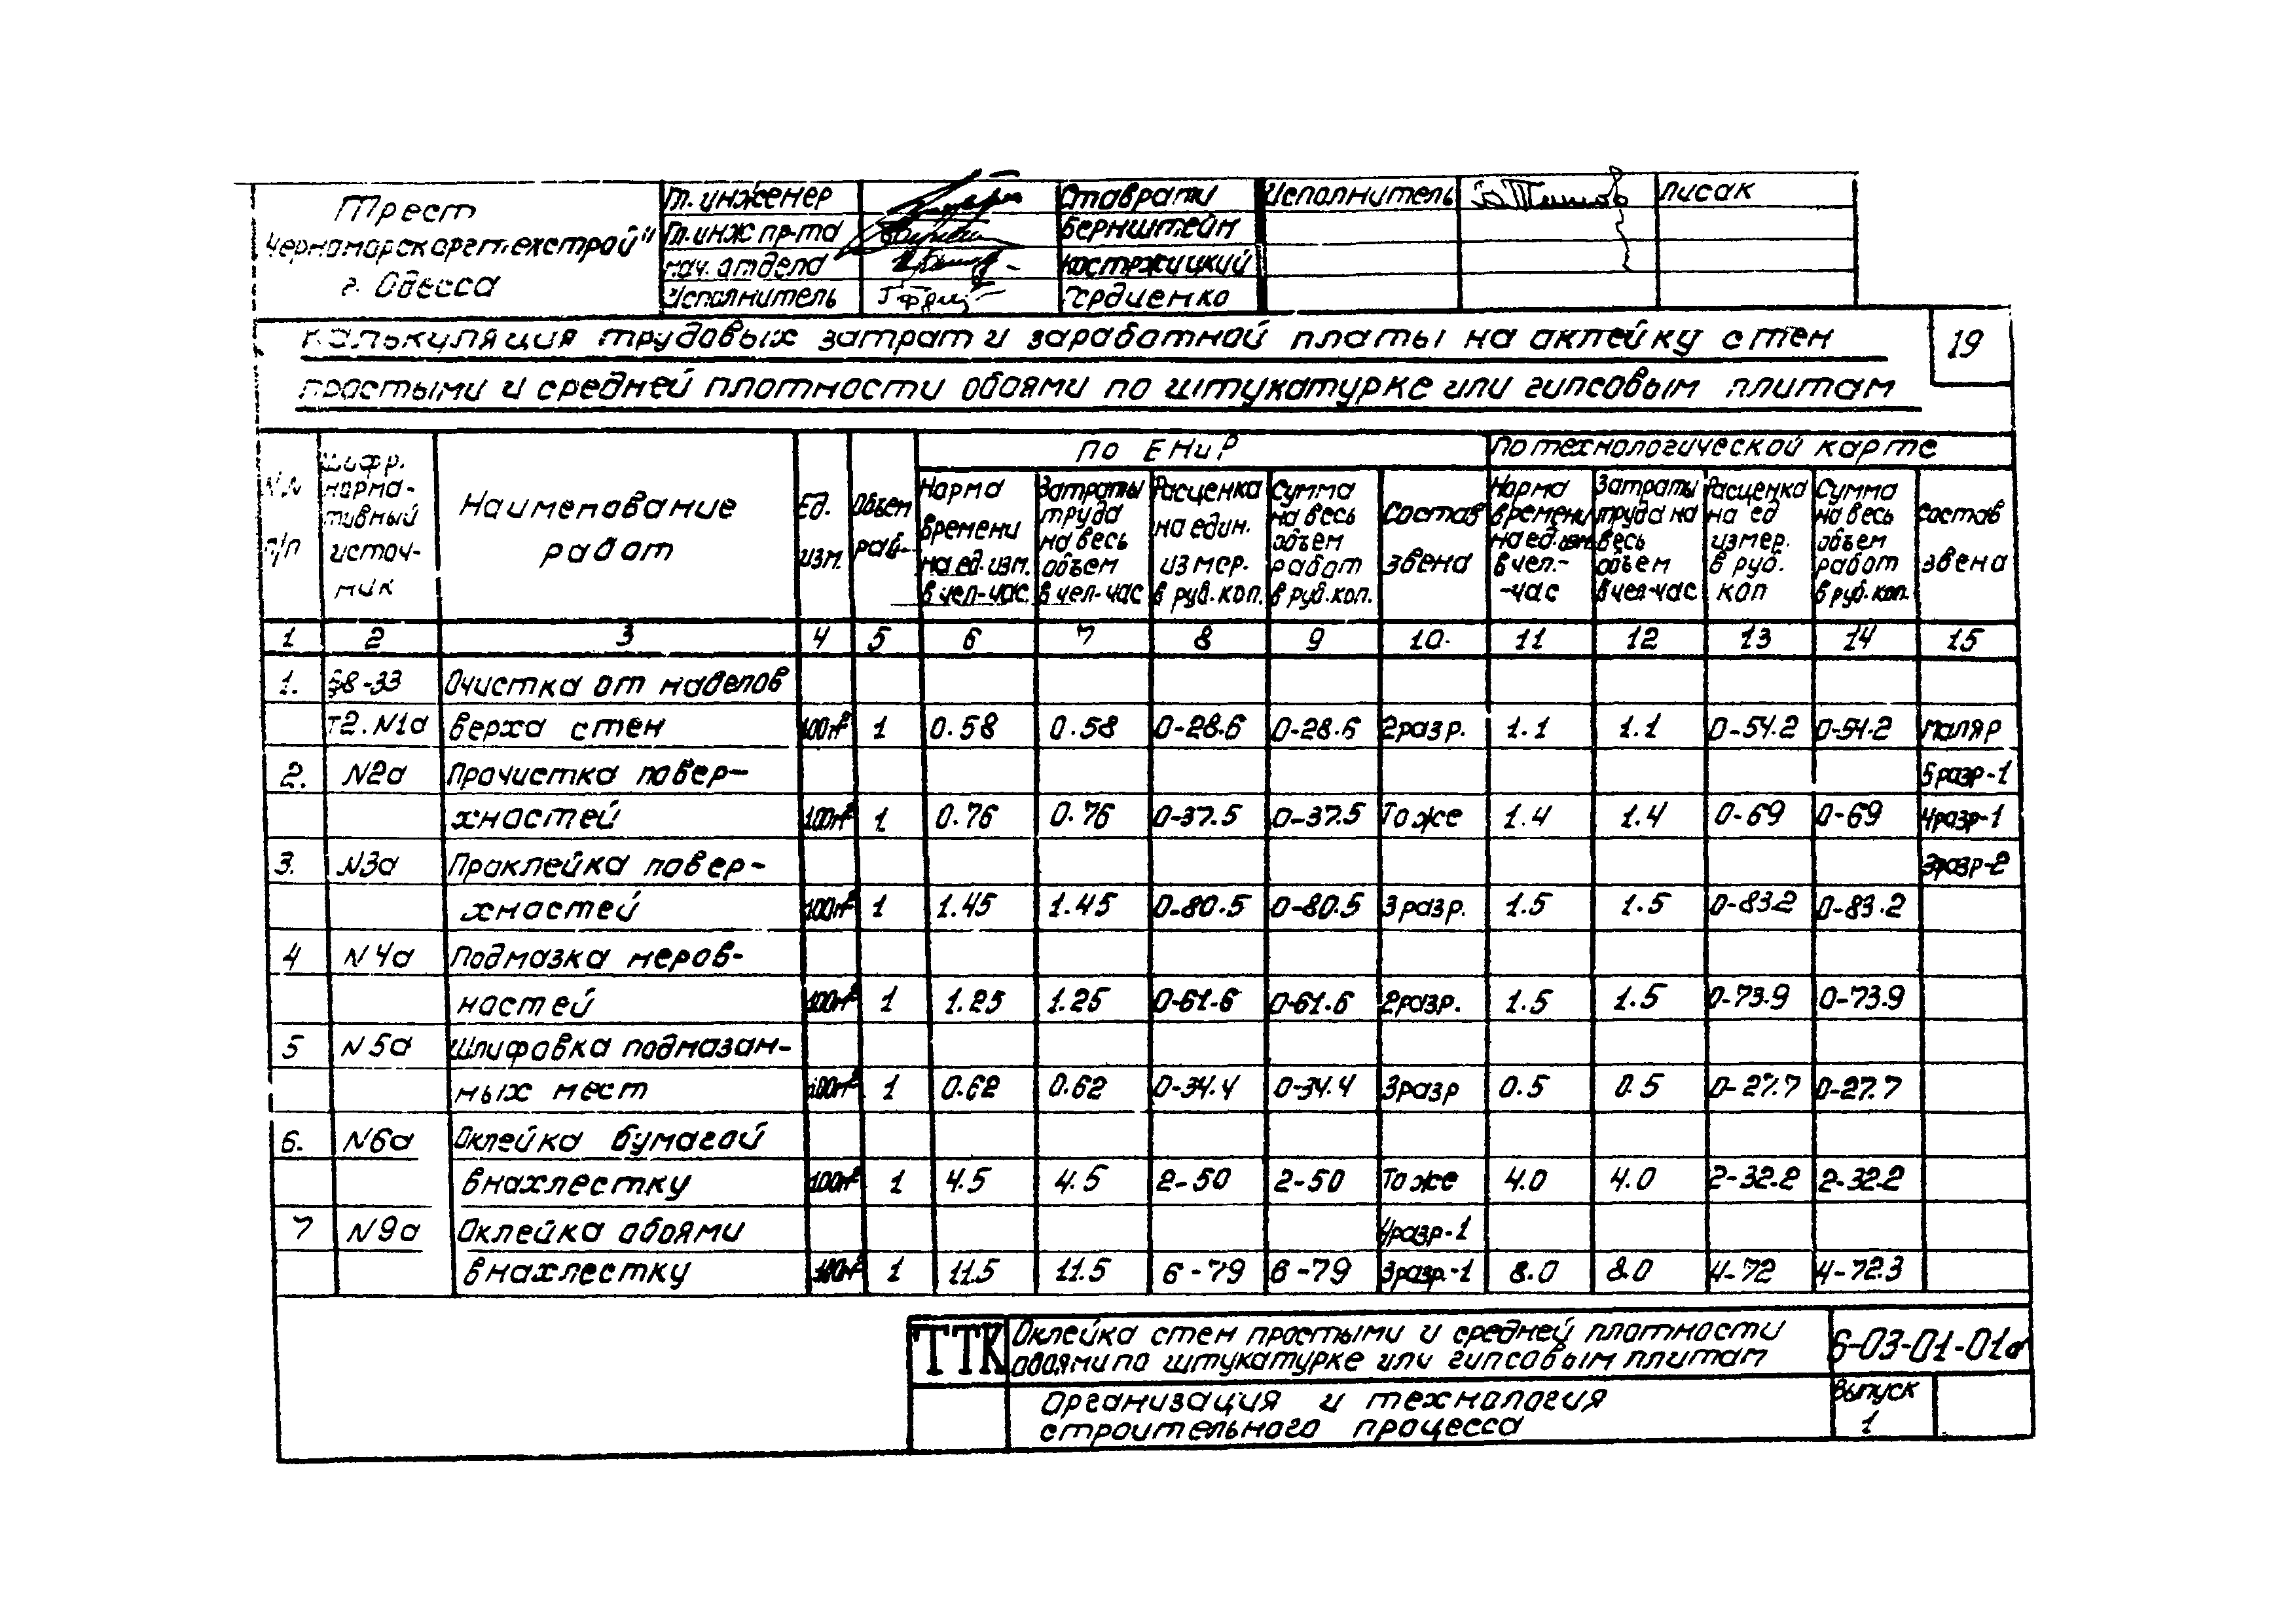 Трест
Черноморскоргтехстрой"
г. Одесса
Гл. инженер Ставрати Исполнитель Лисак
Гл. инж пр-та Бернштейн
нач. отдела Костржицкий
Исполнитель Гордиенко
Калькуляция трудовых затрат и заработной платы на оклейку стен 19
простыми и средней плотности обоями по штукатурке или гипсовым плитам
N.N п/п
Шифр. норма-тивный источ-ник
Наименование работ
Ед. изм.
Объем раб-
По ЕНиР
По технологической карте
Норма времени на ед. изм. в чел-час.
Затраты труда на весь объем в чел-час
Расценка на един. измер. в руб. коп.
Сумма на весь объем работ в руб. коп.
Состав звена
Норма времени на ед. изм. в чел.--час
Затраты труда на весь объем в чел-час
Расценка на ед измер. в руб. коп
Сумма на весь объем работ в руб. коп.
Состав звена
1 2 3 4 5 6 7 8 9 10. 11 12 13 14 15
1. §8-33 Очистка от набелов
т2. N1а верха стен 100м² 1 0.58 0.58 0-28.6 0-28.6 2разр. 1.1 1.1 0-54.2 0-54.2 Маляр
2. N2а Прочистка повер- 5разр-1
хностей 100м² 1 0.76 0.76 0-37.5 0-37.5 То же 1.4 1.4 0-69 0-69 4разр-1
3. N3а Проклейка повер- 3разр-2
хностей 100м² 1 1.45 1.45 0-80.5 0-80.5 3разр. 1.5 1.5 0-83.2 0-83.2
4 N4а Подмазка неров-
ностей 100м² 1 1.25 1.25 0-61.6 0-61.6 2разр. 1.5 1.5 0-73.9 0-73.9
5 N5а Шлифовка подмазан-
ных мест 100м² 1 0.62 0.62 0-34.4 0-34.4 3разр 0.5 0.5 0-27.7 0-27.7
6. N6а Оклейка бумагой
внахлестку 100м² 1 4.5 4.5 2-50 2-50 То же 4.0 4.0 2-32.2 2-32.2
7 N9а Оклейка обоями 4разр-1
внахлестку 100м² 1 11.5 11.5 6-79 6-79 3разр.-1 8.0 8.0 4-72 4-72.3
ТТК Оклейка стен простыми и средней плотности 6-03-01-01а
обоями по штукатурке или гипсовым плитам
Организация и технология Выпуск
строительного процесса 1